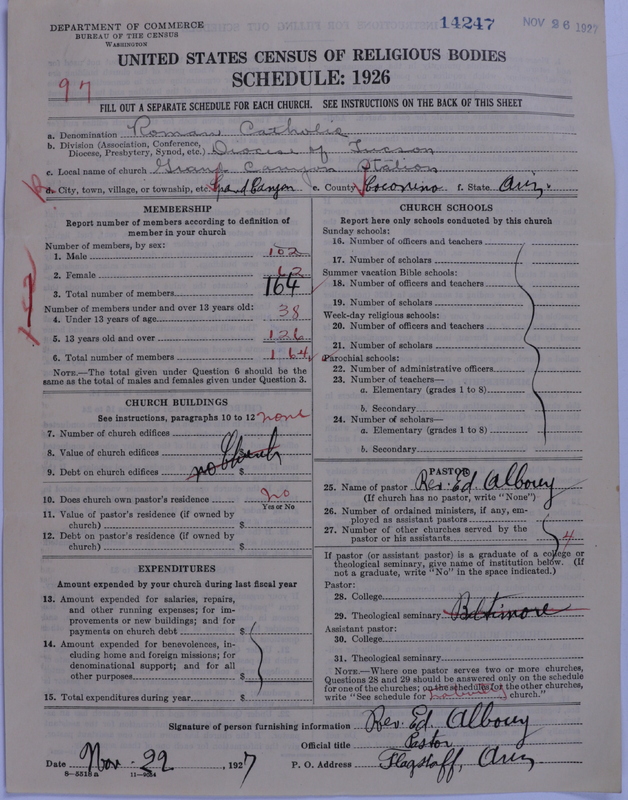 DEPARTMENT OF COMMERCE
BUREAU OF THE CENSUS
WASHINGTON
14247
NOV 26 1927
UNITED STATES CENSUS OF RELIGIOUS BODIES
SCHEDULE: 1926
97
FILL OUT A SEPARATE SCHEDULE FOR EACH CHURCH. SEE INSTRUCTIONS ON THE BACK OF THIS SHEET
a. Denomination Roman Catholic
b. Division (Association, Conference, Diocese, Presbytery, Synod, etc.) Diocese of Tucson
c. Local name of church Grand Canyon Station
d. City, town, village, or township, etc. Grand Canyon e. County Coconino f. State Ariz.
MEMBERSHIP
Report number of members according to definition of
member in your church
Number of members, by sex:
1. Male 102
2. Female 62
3. Total number of members 164
Number of members under and over 13 years old:
4. Under 13 years of age 38
5. 13 years old and over 126
6. Total number of members 164
NOTE.—The total given under Question 6 should be the
same as the total of males and females given under Question 3.
CHURCH BUILDINGS
See instructions, paragraphs 10 to 12 none
7. Number of church edifices
8. Value of church edifices $
9. Debt on church edifices $
no Church
10. Does church own pastor's residence no
Yes or No
11. Value of pastor's residence (if owned by
church) $
12. Debt on pastor's residence (if owned by
church) $
EXPENDITURES
Amount expended by your church during last fiscal year
13. Amount expended for salaries, repairs,
and other running expenses; for im-
provements or new buildings; and for
payments on church debt $
14. Amount expended for benevolences, in-
cluding home and foreign missions; for
denominational support; and for all
other purposes $
15. Total expenditures during year $
CHURCH SCHOOLS
Report here only schools conducted by this church
Sunday schools:
16. Number of officers and teachers
17. Number of scholars
Summer vacation Bible schools:
18. Number of officers and teachers
19. Number of scholars
Week-day religious schools:
20. Number of officers and teachers
21. Number of scholars
Parochial schools:
22. Number of administrative officers
23. Number of teachers—
a. Elementary (grades 1 to 8)
b. Secondary
24. Number of scholars—
a. Elementary (grades 1 to 8)
b. Secondary
PASTOR
25. Name of pastor Rev. Ed. Albouy
(If church has no pastor, write "None")
26. Number of ordained ministers, if any, em-
ployed as assistant pastors
27. Number of other churches served by the
pastor or his assistants 4
If pastor (or assistant pastor) is a graduate of a college or
theological seminary, give name of institution below. (If
not a graduate, write "No" in the space indicated.)
Pastor:
28. College
29. Theological seminary Baltimore
Assistant pastor:
30. College
31. Theological seminary
NOTE.—Where one pastor serves two or more churches,
Questions 28 and 29 should be answered only on the schedule
for one of the churches; on the schedules for the other churches,
write "See schedule for church."
Signature of person furnishing information Rev. Ed. Albouy
Official title Pastor
Date Nov. 22, 1927 P. O. Address Flagstaff, Ariz
8—5518a 11—9584